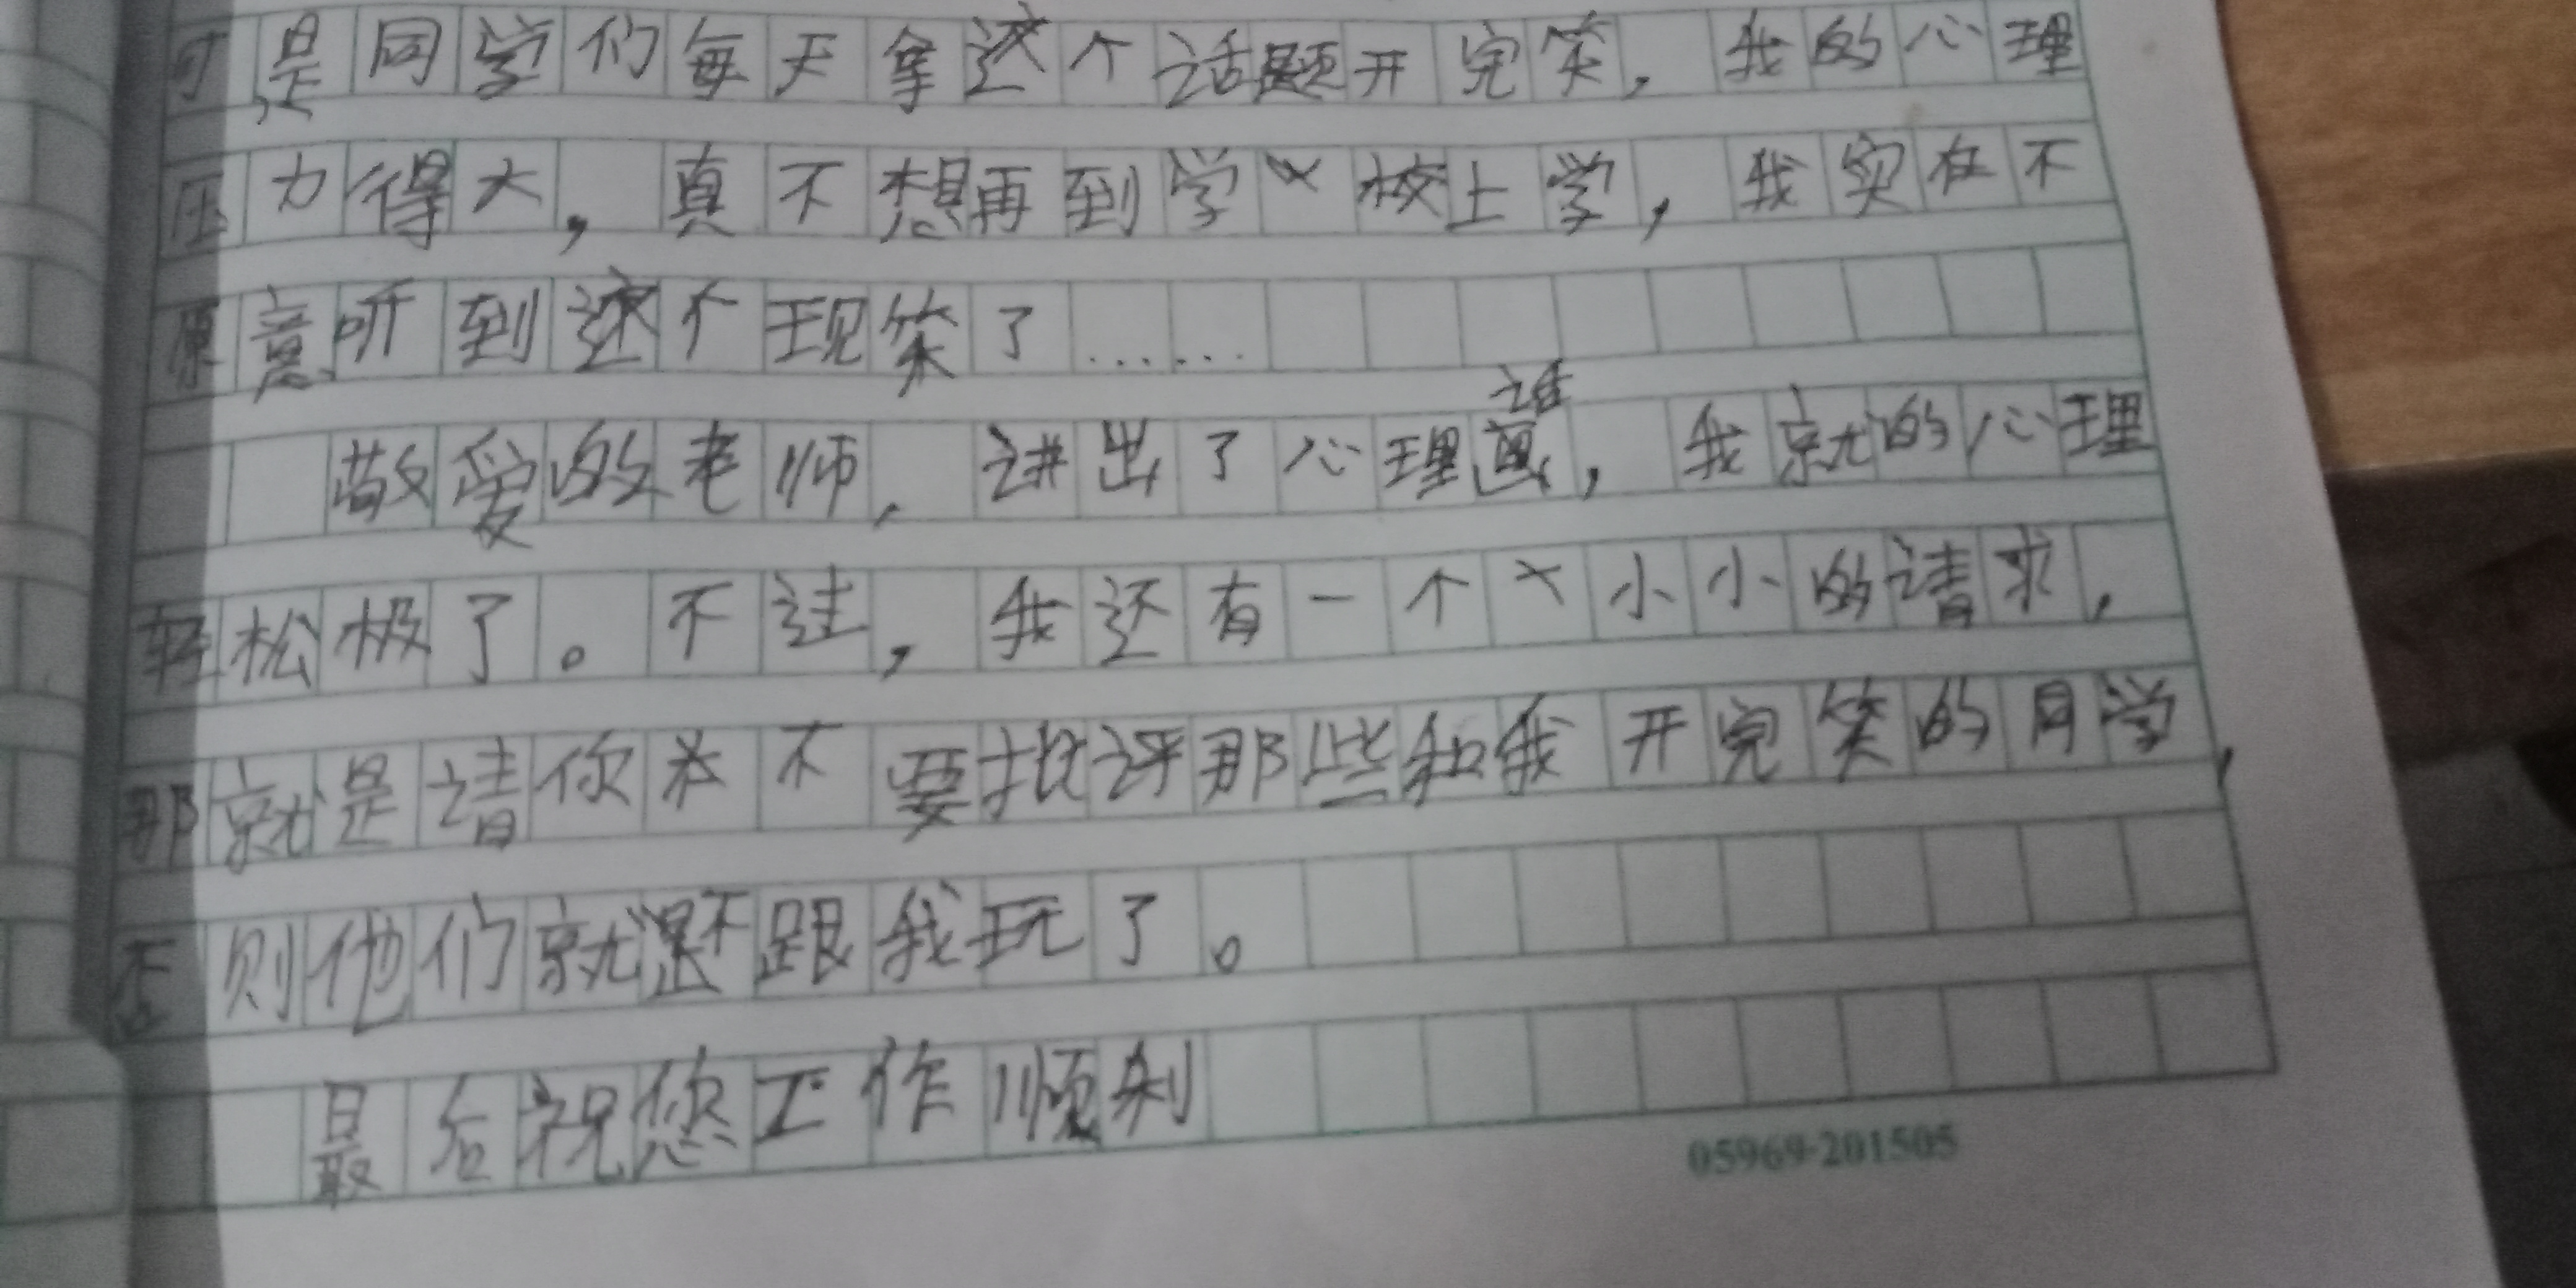 可是同学们每天拿这个话题开完笑，我的心理
压力得大，真不想再到学校上学，我实在不
原意听到这个现笑了……
敬爱的老师，讲出了心理话，我就的心理
轻松极了。不过，我还有一个小小的请求，
那就是请你不要批评那些和我开完笑的同学，
否则他们就不跟我玩了。
最后祝您工作顺利
05969-201505